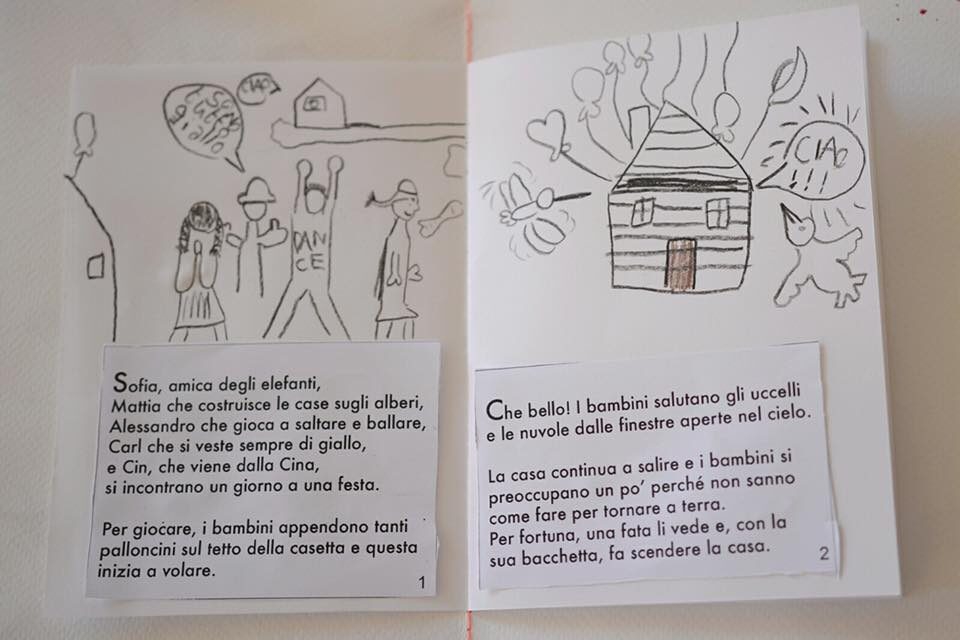 CIAO
DAN
CE
Sofia, amica degli elefanti,
Mattia che costruisce le case sugli alberi,
Alessandro che gioca a saltare e ballare,
Carl che si veste sempre di giallo,
e Cin, che viene dalla Cina,
si incontrano un giorno a una festa.
Per giocare, i bambini appendono tanti
palloncini sul tetto della casetta e questa
inizia a volare.
1
CIAO
!!!
Che bello! I bambini salutano gli uccelli
e le nuvole dalle finestre aperte nel cielo.
La casa continua a salire e i bambini si
preoccupano un po’ perché non sanno
come fare per tornare a terra.
Per fortuna, una fata li vede e, con la
sua bacchetta, fa scendere la casa.
2